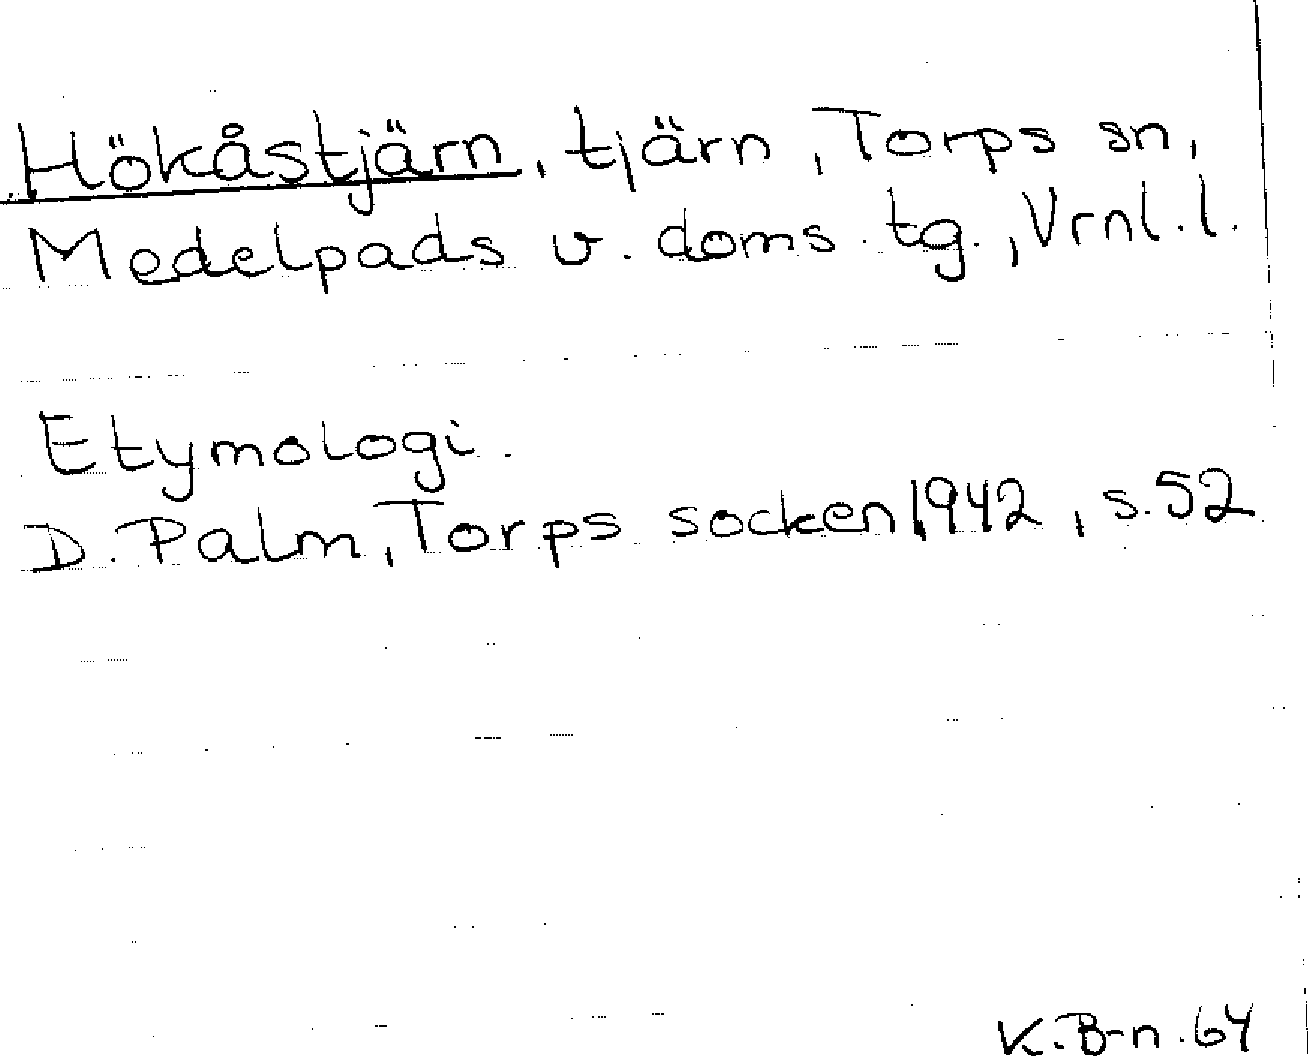 Hökåstjärn, tjärn, Torps sn,
Medelpads v. doms. tg., Vrnl. l.
Etymologi.
D. Palm, Torps socken 1942, s. 52
K. B-n. 64